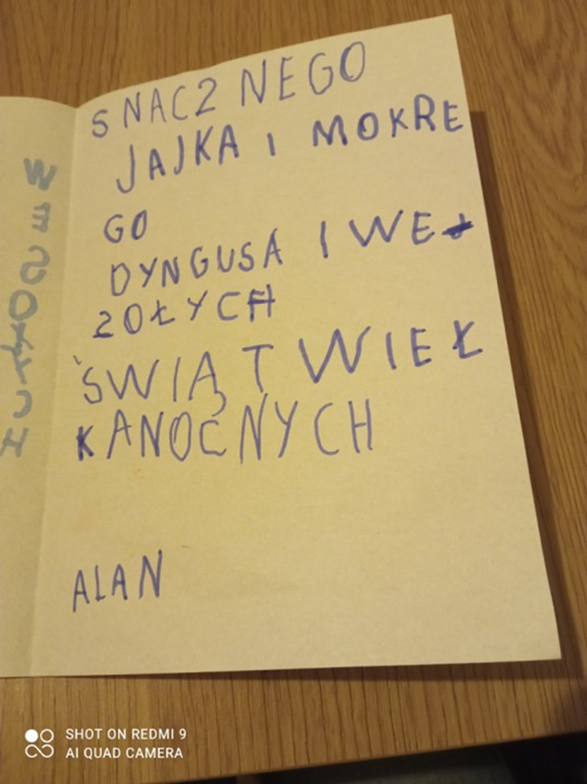 WESOŁYCH
SNACZNEGO
JAJKA I MOKRE
GO
DYNGUSA I WE
ZOŁYCH
ŚWIĄT WIEŁ
KANOCNYCH
ALAN
SHOT ON REDMI 9
AI QUAD CAMERA